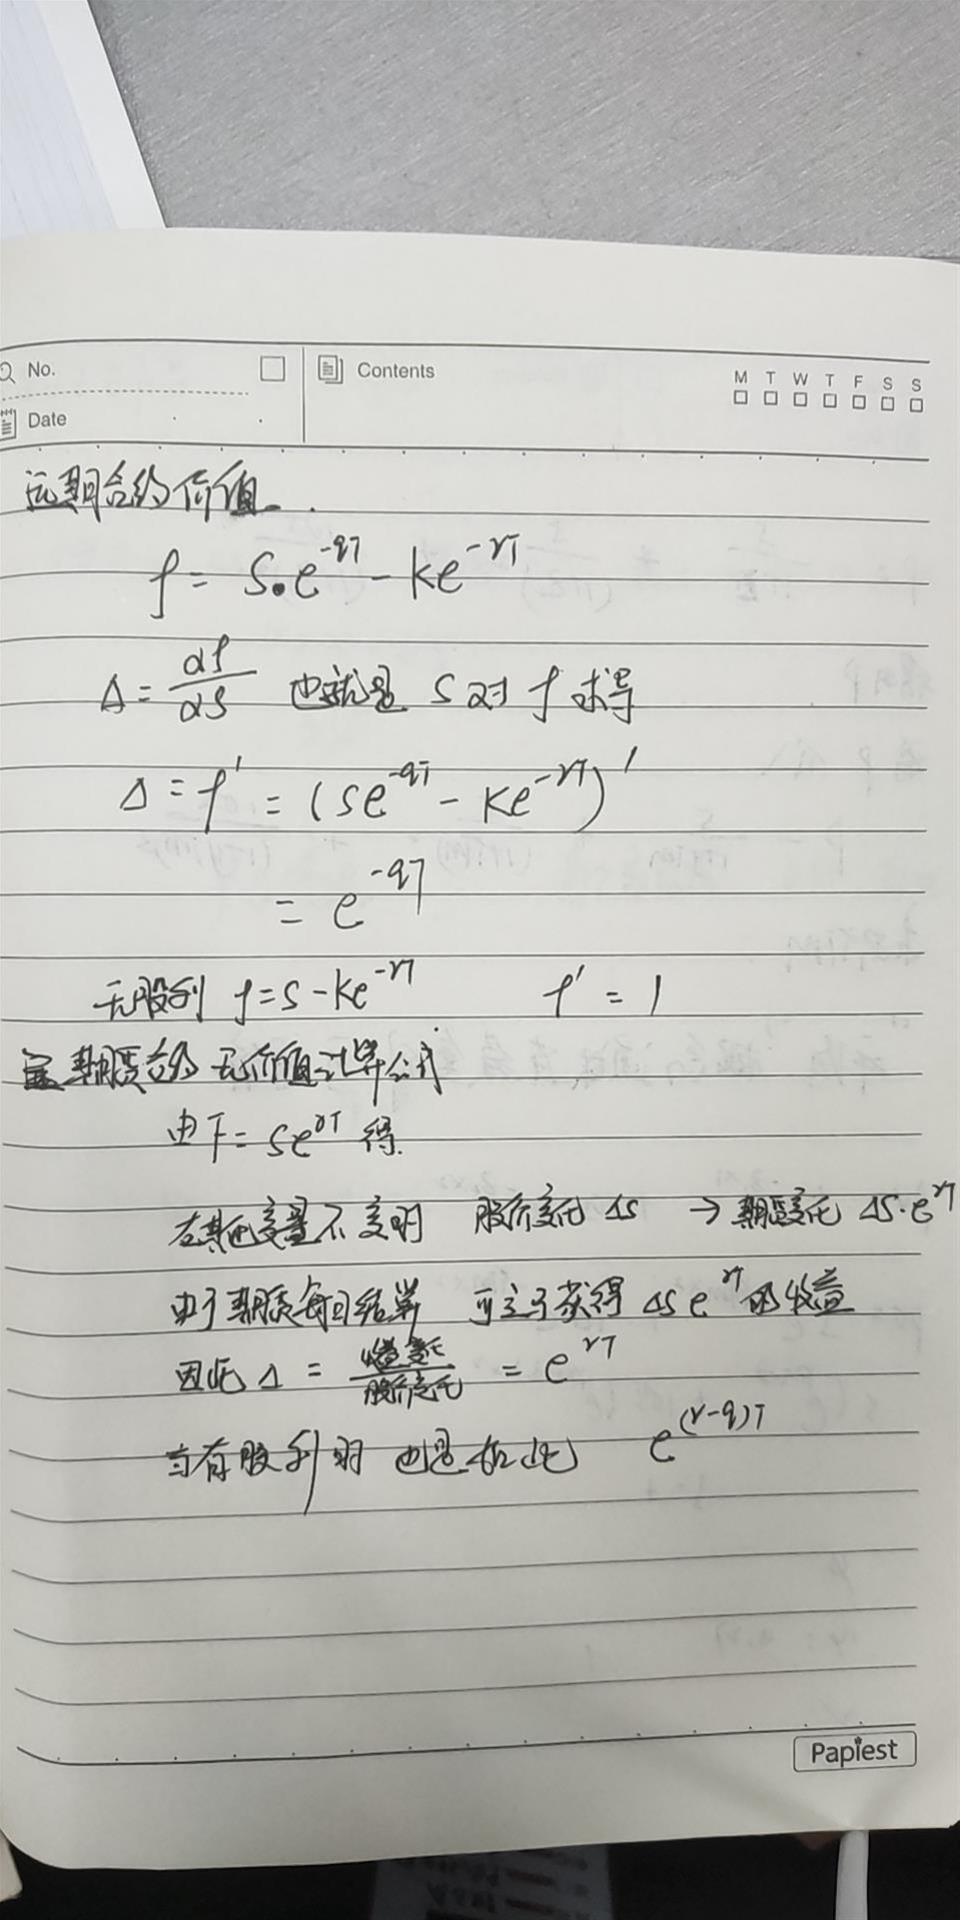 No.
Contents
M T W T F S S
Date
远期合约价值.
f = S₀e^{-qT} - Ke^{-rT}
Δ = αf/αS 也就是 S对 f 求导
Δ = f' = (Se^{-qT} - Ke^{-rT})'
= e^{-qT}
无股利 f = S - Ke^{-rT} f' = 1
期货合约 无价值计算公式
由F = Se^{rT} 得.
在其他变量不变时 股价变化 ΔS → 期货变化 ΔS·e^{rT}
由于期货每日结算 可立于获得 ΔSe^{rT} 的收益
因此 Δ = 收益变化/股价变化 = e^{rT}
当有股利时 也是如此 e^{(r-q)T}
Papiest